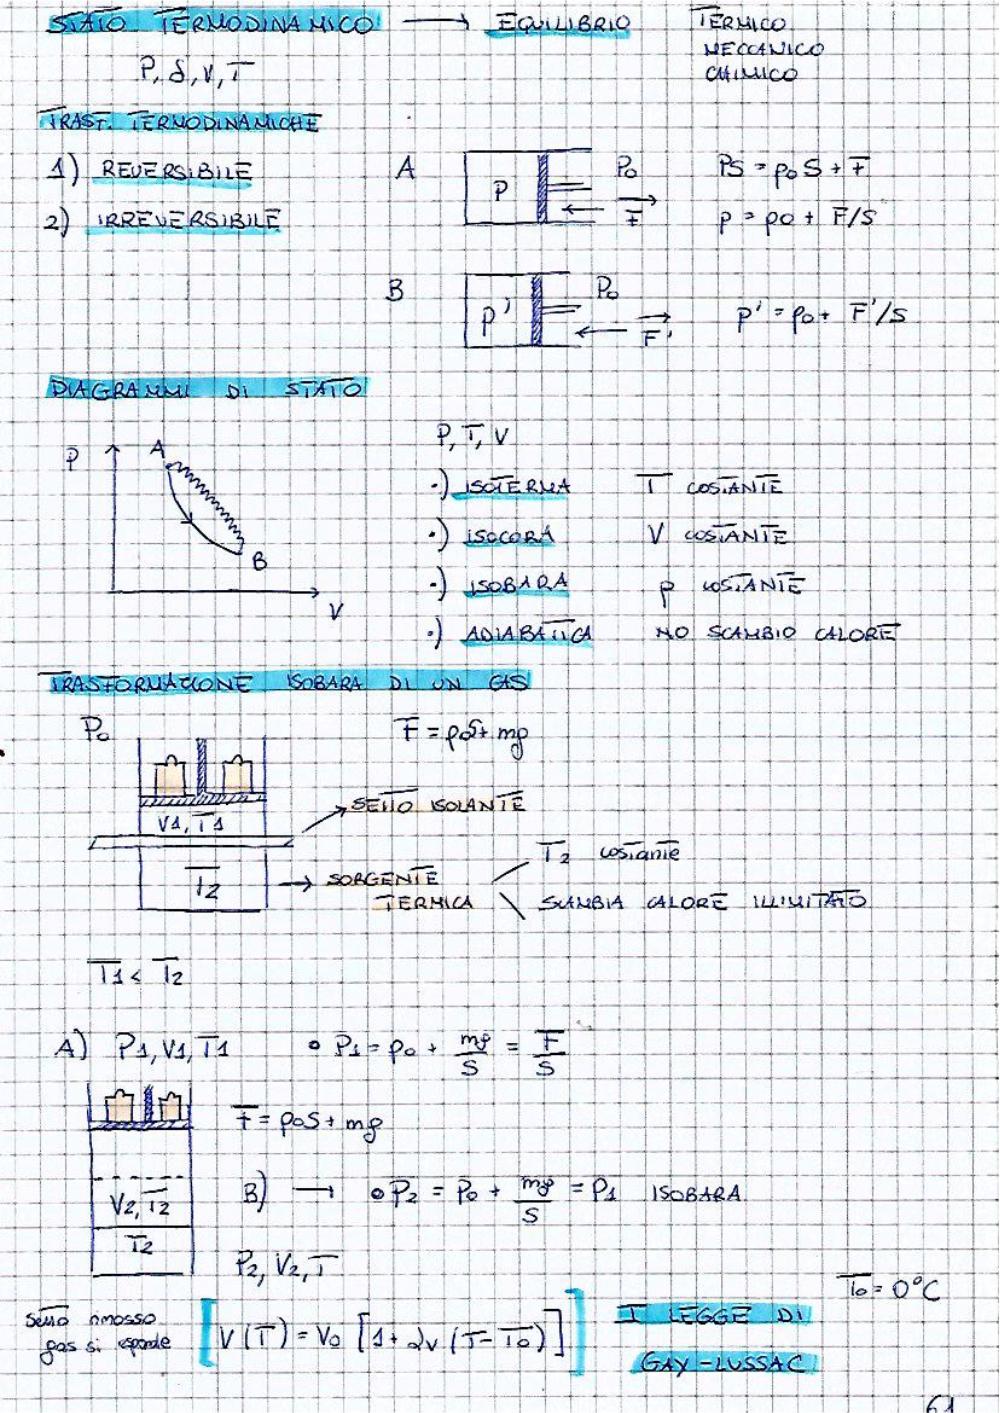 STATO TERMODINAMICO → EQUILIBRIO TERMICO
MECCANICO
CHIMICO
P, δ, V, T
TRASF. TERMODINAMICHE
1) REVERSIBILE
2) IRREVERSIBILE
A P P₀ F
PS = p₀S + F
p = p₀ + F/S
B P' P₀ F'
P' = p₀ + F'/S
DIAGRAMMI DI STATO
P A B V
P, T, V
·) ISOTERMA T COSTANTE
·) ISOCORA V COSTANTE
·) ISOBARA P COSTANTE
·) ADIABATICA NO SCAMBIO CALORE
TRASFORMAZIONE ISOBARA DI UN GAS
P₀
F = p₀S + mg
V1, T1
→ SETTO ISOLANTE
T2 → SORGENTE TERMICA
T2 costante
SCAMBIA CALORE ILLIMITATO
T1 < T2
A) P1, V1, T1 • P1 = p₀ + mg/S = F/S
F = p₀S + mg
V2, T2
T2
B) → • P2 = P₀ + mg/S = P1 ISOBARA
P2, V2, T
T₀ = 0°C
setto rimosso
gas si espande
[V(T) = V₀ [1 + αv (T - T₀)]]
I LEGGE DI
GAY-LUSSAC
61